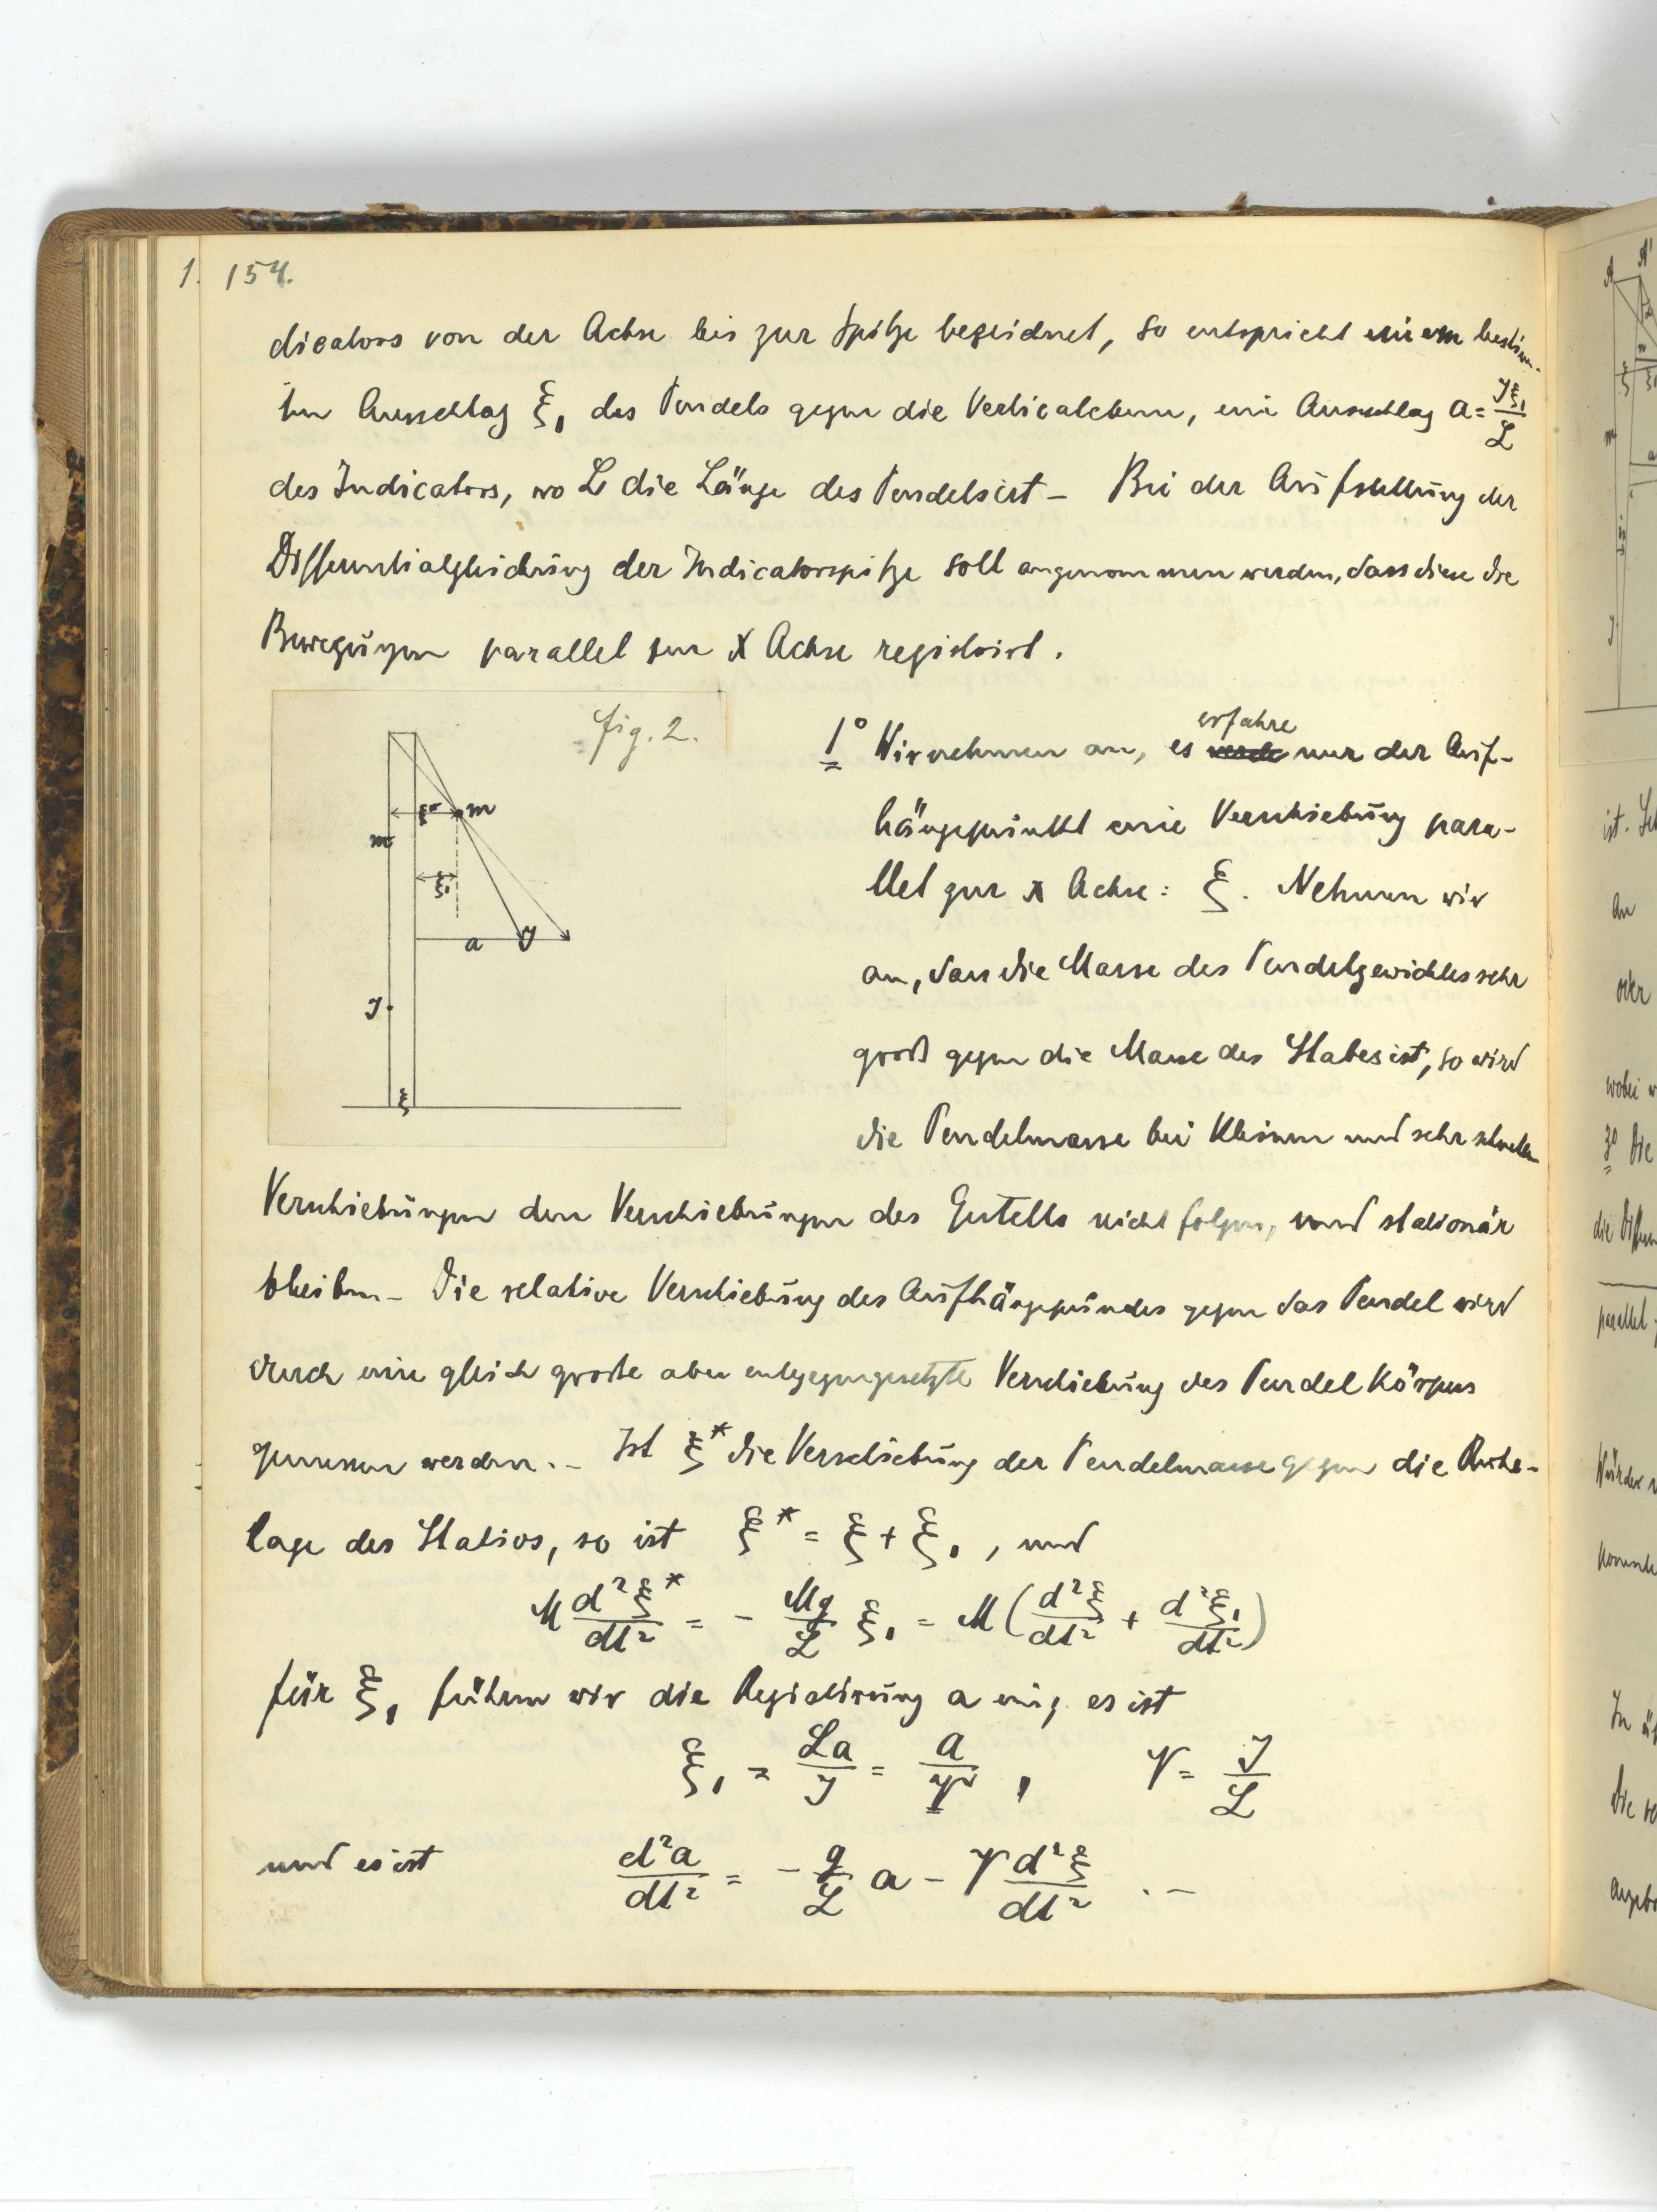 1. 154.
dicators von der Achse bis zur Spitze bezeichnet, so entspricht einem bestim-
ten Ausschlag ξ₁ des Pendels gegen die Verticalebene, ein Ausschlag a = Jξ₁/L
des Indicators, wo L die Länge des Pendels ist – Bei der Aufstellung der
Differentialgleichung der Indicatorspitze soll angenommen werden, dass diese die
Bewegungen parallel zur X Achse registrirt.
fig. 2.
ξ* m
m
ξ₁
a J
J
ξ
1° Wir nehmen an, es erfahre nur der Auf-
hängepunkt eine Verschiebung para-
llel zur x Achse: ξ. Nehmen wir
an, dass die Masse des Pendelgewichtes sehr
groß gegen die Masse des Stabes ist, so wird
die Pendelmasse bei kleinen und sehr schnellen
Verschiebungen den Verschiebungen des Gestells nicht folgen, und stationär
bleiben – Die relative Verschiebung des Aufhängepunktes gegen das Pendel wird
durch eine gleich große aber entgegengesetzte Verschiebung des Pendelkörpers
gemessen werden. – Ist ξ* die Verschiebung der Pendelmasse gegen die Ruhe-
lage des Stativs, so ist ξ* = ξ + ξ₁, und
M d²ξ*/dt² = – Mg/L ξ₁ = M (d²ξ/dt² + d²ξ₁/dt²)
für ξ₁ führen wir die Registrirung a ein, es ist
ξ₁ = La/J = a/V, V = J/L
und es ist d²a/dt² = – g/L a – V d²ξ/dt² . –